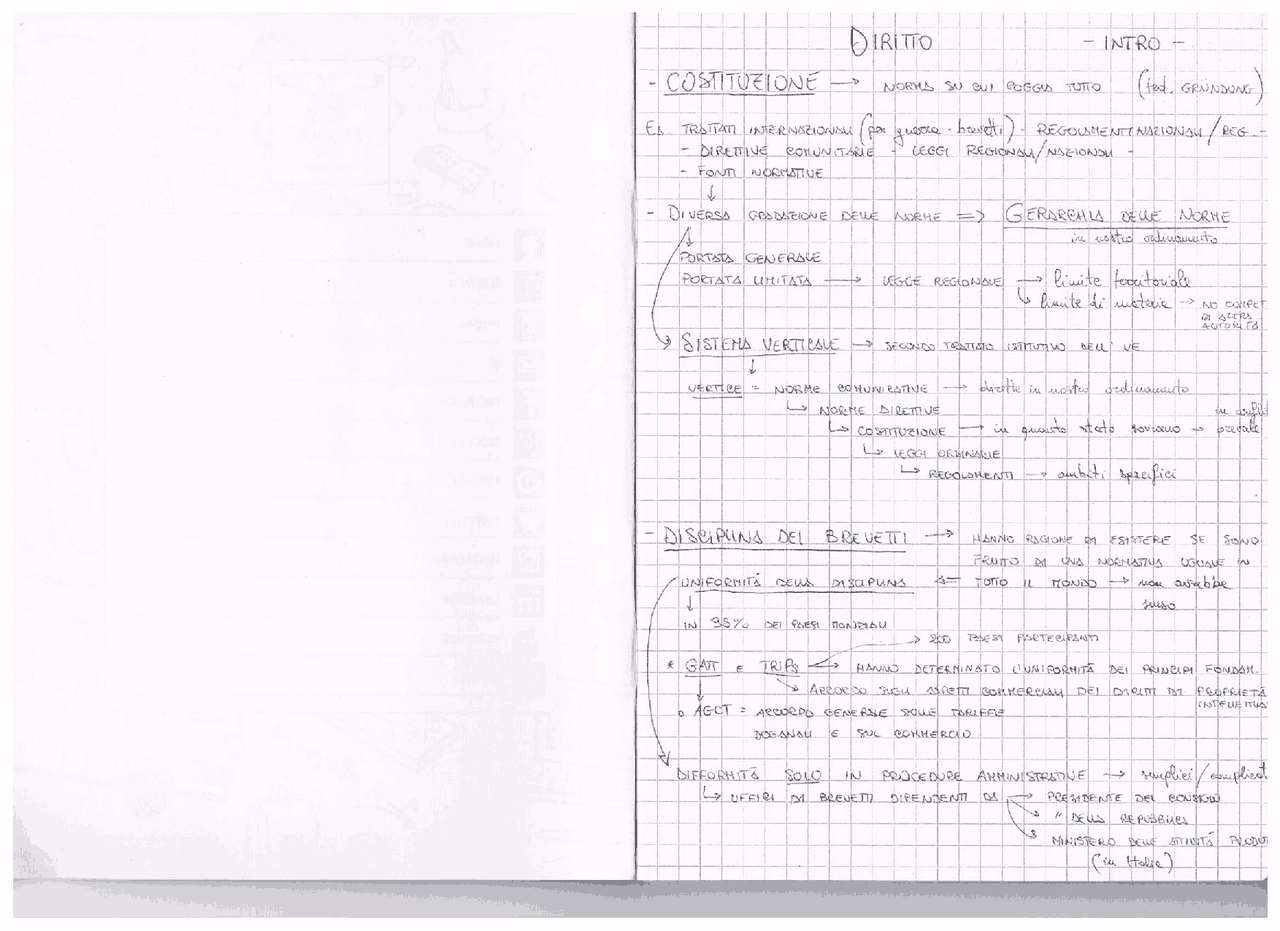 DIRITTO - INTRO -
- COSTITUZIONE → NORMA SU CUI POGGIA TUTTO (ted. GRÜNDUNG)
Es TRATTATI INTERNAZIONALI (per guerra - brevetti) - REGOLAMENTI NAZIONALI / REG. -
- DIRETTIVE COMUNITARIE - LEGGI REGIONALI/NAZIONALI -
- FONTI NORMATIVE
↓
- DIVERSA GRADAZIONE DELLE NORME => GERARCHIA DELLE NORME
in nostro ordinamento
PORTATA GENERALE
PORTATA LIMITATA → LEGGE REGIONALE → limite territoriale
↳ limite di materia → NO COMPET
DI ALTRA
AUTORITÀ
SISTEMA VERTICALE → SECONDO TRATTATO ISTITUTIVO DELL'UE
↓
VERTICE = NORME COMUNITATIVE → dirette in nostro ordinamento
↳ NORME DIRETTIVE
in confli
↳ COSTITUZIONE → in quanto stato sovrano → prevale
↳ LEGGI ORDINARIE
↳ REGOLAMENTI → ambiti specifici
- DISCIPLINA DEI BREVETTI → HANNO RAGIONE DI ESISTERE SE SONO
FRUTTO DI UNA NORMATIVA UGUALE IN
UNIFORMITÀ DELLA DISCIPLINA <= TUTTO IL MONDO → non avrebbe
senso
↓
IN 95% DEI PAESI MONDIALI
→ 200 PAESI PARTECIPANTI
* GATT E TRIPs → HANNO DETERMINATO L'UNIFORMITÀ DEI PRINCIPI FONDAM.
↘ ACCORDO SUGLI ASPETTI COMMERCIALI DEI DIRITTI DI PROPRIETÀ
INTELLETTUA
o AGCT = ACCORDO GENERALE SULLE TARIFFE
DOGANALI E SUL COMMERCIO
DIFFORMITÀ SOLO IN PROCEDURE AMMINISTRATIVE → semplici/complicat
↳ UFFICI DI BREVETTI DIPENDENTI DA → PRESIDENTE DEL CONSIGLIO
↘ " DELLA REPUBBLICA
↘ MINISTERO DELLE ATTIVITÀ PRODUT
(in Italia)